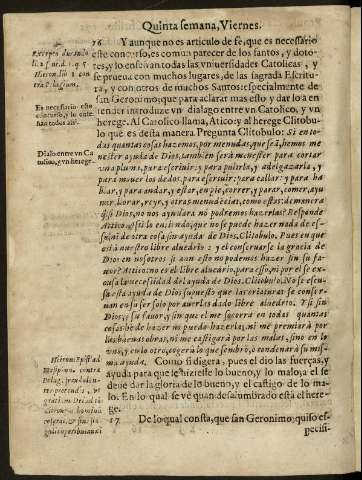 Quinta semana, Viernes.
16 Y aunque no es articulo de fè, que es necessario
este concurso, es comun parecer de los santos, y doto-
res, y lo enseñan todas las vniuersidades Catolicas, y
se prueua con muchos lugares, de las sagrada Escritu-
ra, y con otros de muchos Santos: especialmente de
san Geronimo; que para aclarar mas esto y dar lo à en
tender introduze vn dialago entre vn Catolico, y vn
herege. Al Catolico llama, Atico; y al herege Clitobu-
lo que es desta manera Pregunta Clitobulo: Si en to-
das quantas cosas hazemos, por menudas, que seã, hemos me
nester ayuda de Dios, tambien será menester para cortar
vna pluma, para escriuir: y para pulirla, y adelgazarla, y
para mouer los dedos, para escriuir: para callar: y para ha
blar, y para andar, y estar, en pie, correr, y parar, comer, ayu
nar, llorar, reyr, y otras menudécias, como estas: demanera
si Dios, no nos ayudara no podremos hazerlas? Responde
Attico
otra cosa sin ayuda de Dios. Clitobulo. Pues en que
està nuestro libre aluedrio: y el conseruarse la gracia de
Dios en nosotros si aun esto no podemos hazer sin su fa
uor? Attico: no es el libre aluedrio, para esso, ni por el se ex-
cusa la necessidad del ayuda de Dios. Clitobulo. No se escu-
sa está ayuda de Dios supuesto que las criaturas se conser-
uan en su ser solo por auerlas dado libre aluedrio. Y si sin
Dios, y su fauor, y sin que el me socorra en todas quantas
cosas he de hazer no puedo hazerlas, ni me premiarà por
las buenas obras, ni me castigarà por las malas, sino en lo
vno, y en lo otro, cogerà lo que sembrò, ò condenarà su mis-
ma ayuda. Como si digera, pues el dio las fuerças, y
ayuda para que se hiziesse lo bueno, y lo malo; a el se
deue dar la gloria de lo bueno, y el castigo de lo ma-
lo. En lo qual se vè quan desalumbrado està el here-
ge.
17 De lo qual consta, que san Geronimo; quiso es-
pecisi-
Es necessario este
concurso, y lo ense
ñan todas las
Dialo entre vn Ca
tolico, y vn herege.